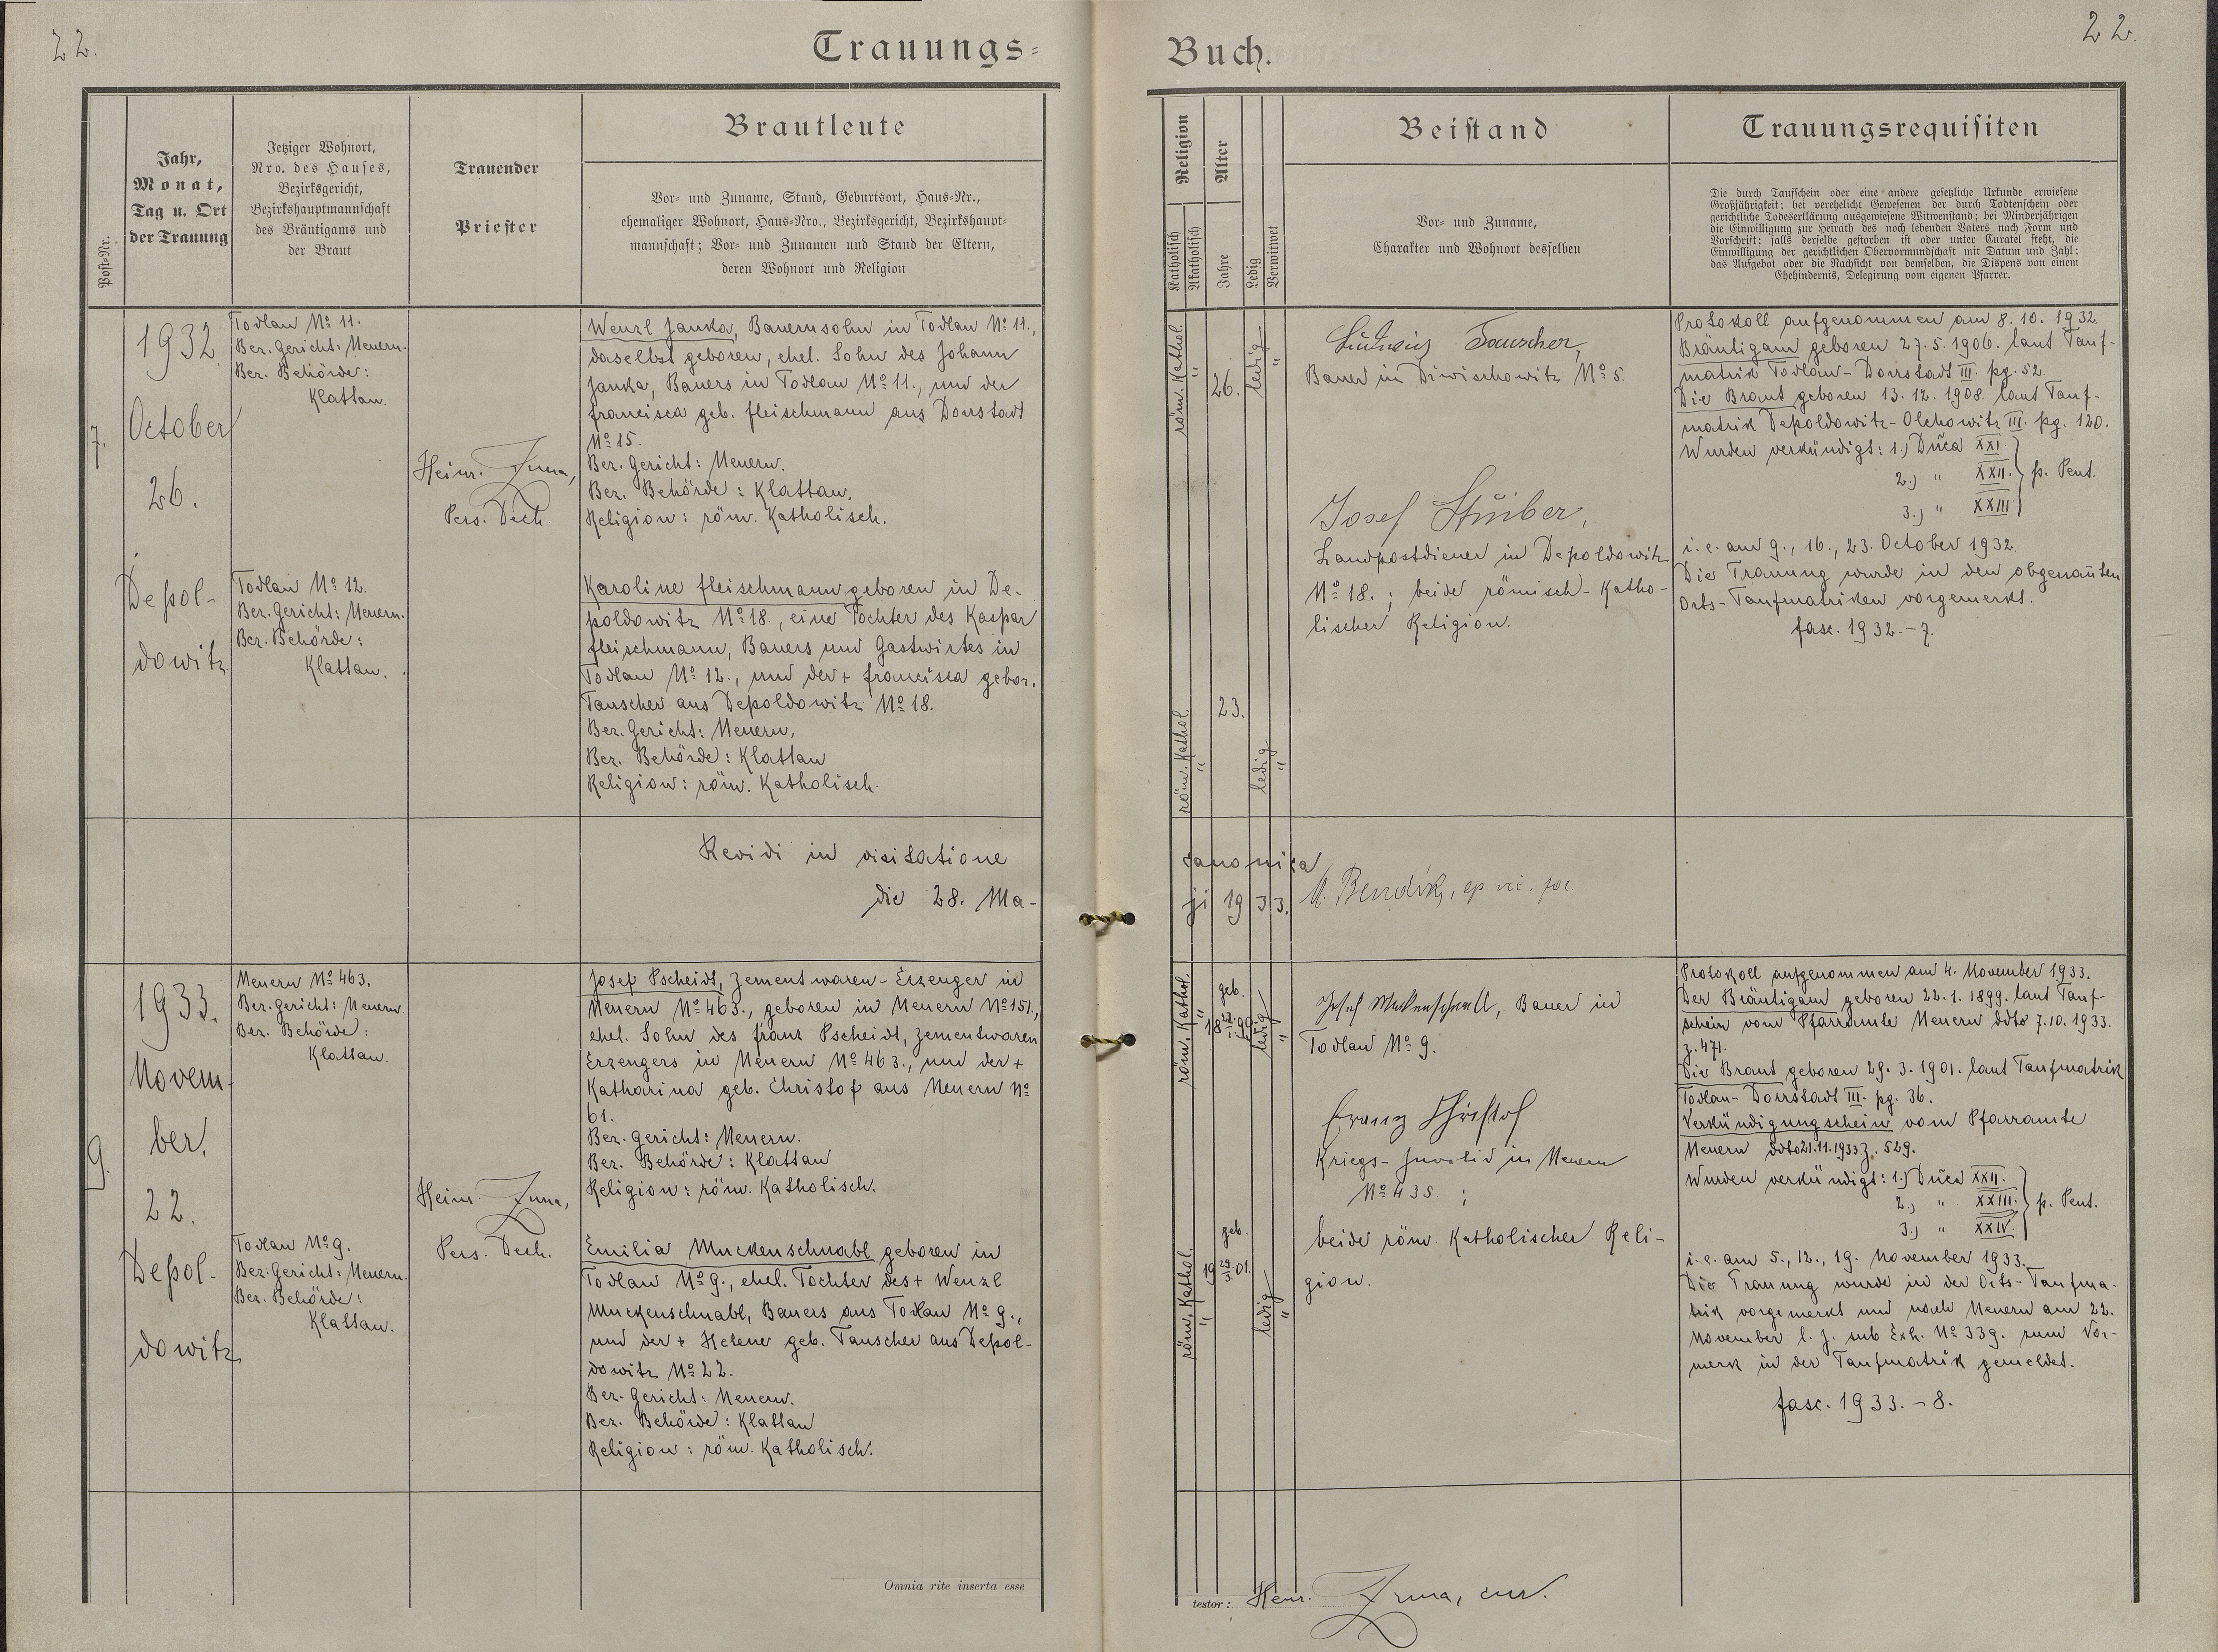 22.
Trauungs=
Post=Nr.
Jahr,
Monat,
Tag u. Ort
der Trauung
Jetziger Wohnort,
Nro. des Hauses,
Bezirksgericht,
Bezirkshauptmannschaft
des Bräutigams und
der Braut
Trauender
Priester
Brautleute
Vor= und Zuname, Stand, Geburtsort, Haus=Nr.,
ehemaliger Wohnort, Haus=Nro., Bezirksgericht, Bezirkshaupt=
mannschaft; Vor= und Zunamen und Stand der Eltern,
deren Wohnort und Religion
7.
1932
October
26.
Depol-
dowitz
Todlau No 11.
Bez. Gericht: Neuern.
Bez. Behörde:
Klattau.
Todlau No 12.
Bez. Gericht: Neuern.
Bez. Behörde:
Klattau.
Heinr. Zuna,
Pers. Dech.
Wenzl Janka, Bauernsohn in Todlau No 11.,
daselbst geboren, ehel. Sohn des Johann
Janka, Bauers in Todlau No 11., und der
Francisca geb. Fleischmann aus Dorrstadt
No 15.
Bez. Gericht: Neuern.
Bez. Behörde: Klattau.
Religion: röm. Katholisch.
Karoline Fleischmann geboren in De-
poldowitz No 18., eine Tochter des Kaspar
Fleischmann, Bauers und Gastwirtes in
Todlau No 12., und der + Francisca gebor.
Tauscher aus Depoldowitz No 18.
Bez. Gericht: Neuern,
Bez. Behörde: Klattau
Religion: röm. Katholisch.
Revidi in visitatione
die 28. Ma-
9.
1933.
Novem-
ber.
22.
Depol-
dowitz
Neuern No 463.
Bez. Gericht: Neuern.
Bez. Behörde:
Klattau.
Todlau No 9.
Bez. Gericht: Neuern.
Bez. Behörde:
Klattau.
Heinr. Zuna,
Pers. Dech.
Josef Pscheidt, Zementwaren-Erzeuger in
Neuern No 463., geboren in Neuern No 151.,
ehel. Sohn des Franz Pscheidt, Zementwaren
Erzeugers in Neuern No 463., und der +
Katharina geb. Christof aus Neuern No
61.
Bez. Gericht: Neuern.
Bez. Behörde: Klattau
Religion: röm. Katholisch.
Emilia Muckenschnabl geboren in
Todlau No 9., ehel. Tochter des + Wenzl
Muckenschnabl, Bauers aus Todlau No 9.,
und der + Helene geb. Tauscher aus Depol-
dowitz No 22.
Bez. Gericht: Neuern.
Bez. Behörde: Klattau
Religion: röm. Katholisch.
Omnia rite inserta esse
22.
Buch.
Religion
Katholisch
Akatholisch
Alter
Jahre
Ledig
Verwitwet
Beistand
Vor= und Zuname,
Charakter und Wohnort desselben
Trauungsrequisiten
Die durch Taufschein oder eine andere gesetzliche Urkunde erwiesene
Großjährigkeit; bei verehelicht Gewesenen der durch Todtenschein oder
gerichtliche Todeserklärung ausgewiesene Witwenstand; bei Minderjährigen
die Einwilligung zur Heirath des noch lebenden Vaters nach Form und
Vorschrift; falls derselbe gestorben ist oder unter Curatel steht, die
Einwilligung der gerichtlichen Obervormundschaft mit Datum und Zahl;
das Aufgebot oder die Nachsicht von demselben, die Dispens von einem
Ehehindernis, Delegirung vom eigenen Pfarrer.
röm. Kathol.
"
26.
ledig
"
Ludwig Tauscher,
Bauer in Diwischowitz No 5.
Josef Stuiber,
Landpostdiener in Depoldowitz
No 18.; beide römisch-Katho-
lischer Religion.
röm. Kathol.
"
23.
ledig
"
Protokoll aufgenommen am 8. 10. 1932.
Bräutigam geboren 27. 5. 1906. laut Tauf-
matrik Todlau-Dorrstadt III. pg. 52.
Die Braut geboren 13. 12. 1908. laut Tauf-
matrik Depoldowitz-Olchowitz III. pg. 120.
Wurden verkündigt: 1.) Dñca XXI.
2.) " XXII. p. Pent.
3.) " XXIII
i. e. am 9., 16., 23. October 1932.
Die Trauung wurde in den obgenañten
Orts-Taufmatriken vorgemerkt.
fasc. 1932.-7.
canonica
ji 1933.
ep. vic.
röm. Kathol.
"
geb.
18 22./1. 99
ledig
"
Josef Muckenschnabl, Bauer in
Todlau No 9.
Franz Christof
Kriegs-Invalid in Neuern
No 435. ;
beide röm. Katholischer Reli-
gion.
röm. Kathol.
"
geb.
19 29./3. 01.
ledig
"
Protokoll aufgenommen am 4. November 1933.
Der Bräutigam geboren 22. 1. 1899. laut Tauf-
schein vom Pfarramte Neuern ddto 7.10. 1933.
z. 471.
Die Braut geboren 29. 3. 1901. laut Taufmatrik
Todlau-Dorrstadt III. pg. 36.
Verkündigungschein vom Pfarramte
Neuern ddto 21.11.1933 z. 529.
Wurden verkündigt: 1.) Dñca XXII.
2.) " XXIII. p. Pent.
3.) " XXIV.
i. e. am 5., 12., 19. November 1933.
Die Trauung wurde in der Orts-Taufma-
trik vorgemerkt und nach Neuern am 22.
November l. J. sub Exh. No 339. zum Vor-
merk in der Taufmatrik gemeldet.
fasc. 1933.-8.
testor: Henr. Zuna, cur.